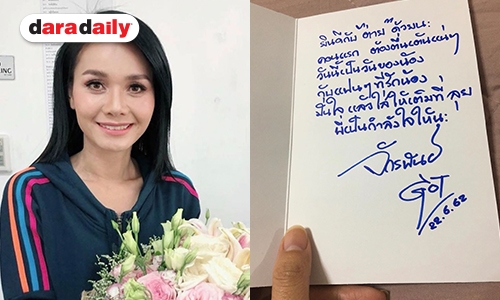 daradaily
ยินดีกับ "ต่าย" ด้วยนะ
คอนแรก ต้องตื่นเต้นแน่ๆ
วันนี้เป็นวันของน้อง
กับแฟนๆ ที่รักน้อง
มั่นใจ แล้วใส่ให้เต็มที่ ลุย
พี่เป็นกำลังใจให้นะ
จักรพันธ์
22.6.62